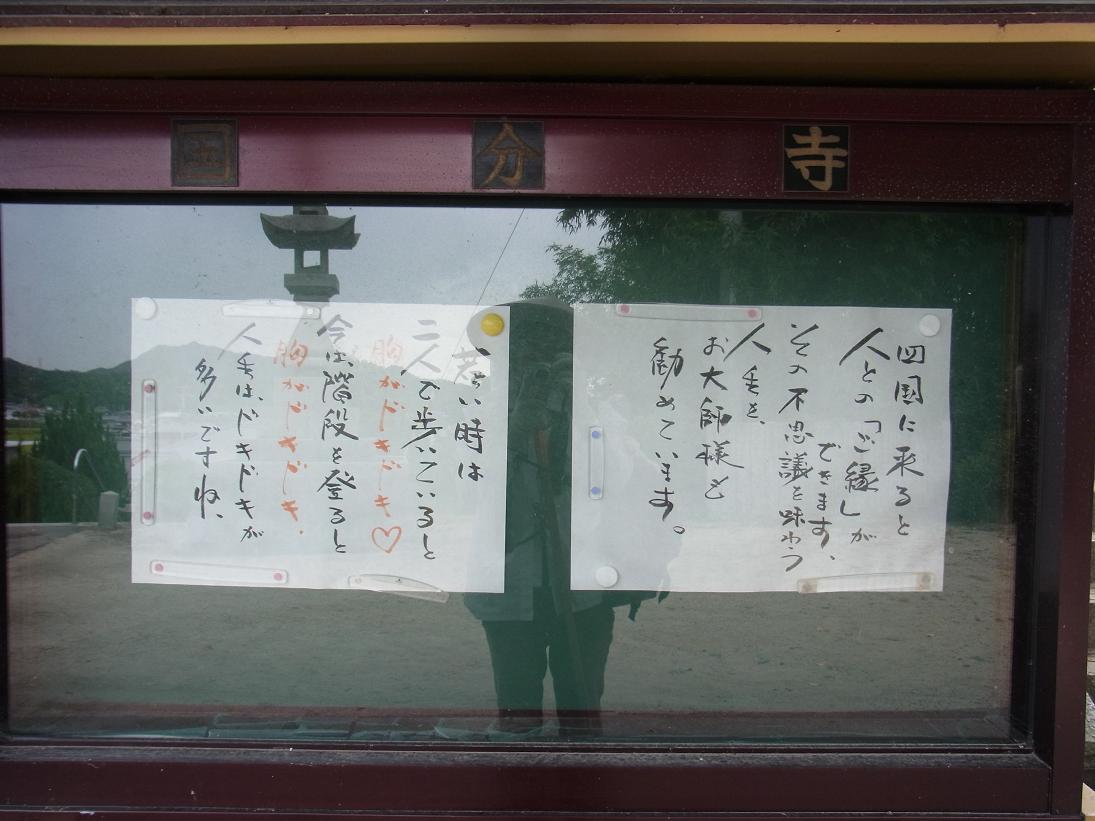 国分寺
四国に来ると
人との「ご縁」が
できます、
その不思議を味わう
人生を、
お大師様も
勧めています。
若い時は
二人で歩いていると
胸がドキドキ♡
今は、階段を登ると
胸がドキドキ.
人生は、ドキドキが
多いですね、